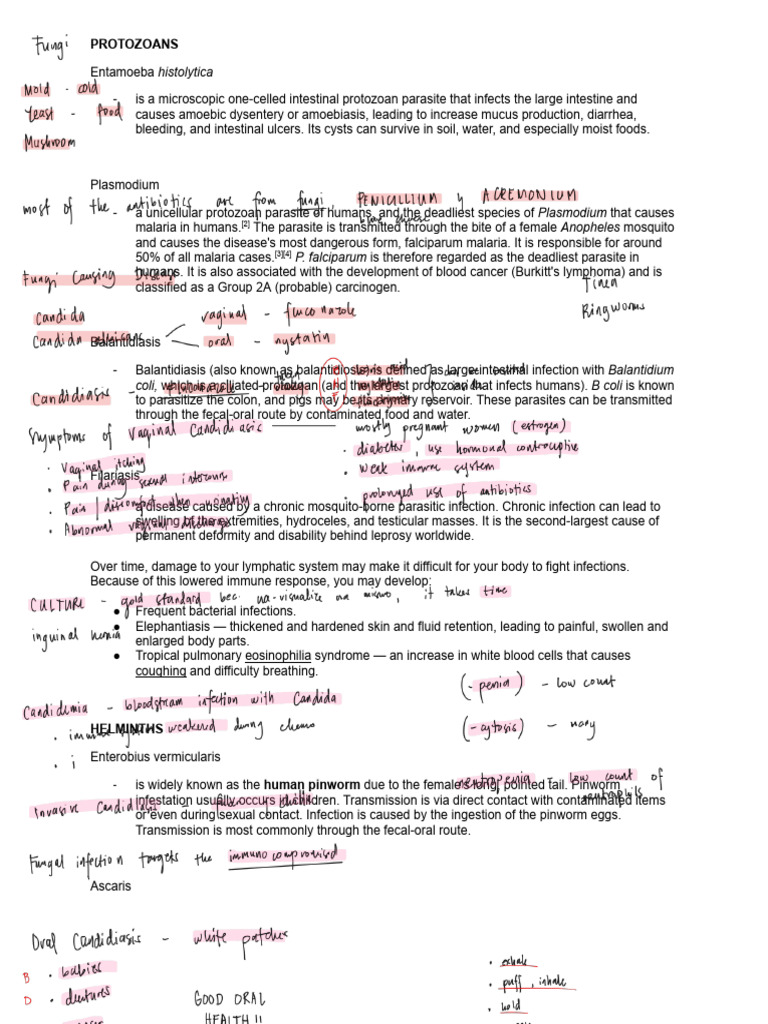 Fungi
PROTOZOANS
Entamoeba histolytica
Mold - cold
Yeast - food
Mushroom
- is a microscopic one-celled intestinal protozoan parasite that infects the large intestine and
causes amoebic dysentery or amoebiasis, leading to increase mucus production, diarrhea,
bleeding, and intestinal ulcers. Its cysts can survive in soil, water, and especially moist foods.
Plasmodium
most of the antibiotics are from fungi, PENICILLIUM y ACREMONIUM
- a unicellular protozoan parasite of humans, and the deadliest species of Plasmodium that causes
malaria in humans.[2] The parasite is transmitted through the bite of a female Anopheles mosquito
and causes the disease's most dangerous form, falciparum malaria. It is responsible for around
50% of all malaria cases.[3][4] P. falciparum is therefore regarded as the deadliest parasite in
humans. It is also associated with the development of blood cancer (Burkitt's lymphoma) and is
classified as a Group 2A (probable) carcinogen.
Fungi Causing
Tinea
Ringworms
Candida
vaginal - fluconazole
Candida albicans
oral - nystatin
Balantidiasis
- Balantidiasis (also known as balantidiosis) is defined as large-intestinal infection with Balantidium
coli, which is a ciliated protozoan (and the largest protozoan that infects humans). B coli is known
to parasitize the colon, and pigs may be its primary reservoir. These parasites can be transmitted
through the fecal-oral route by contaminated food and water.
Candidiasis -
Symptoms of Vaginal Candidiasis
mostly pregnant women (estrogen)
• diabetes, use hormonal contraceptive
• weak immune system
• prolonged use of antibiotics
• Vaginal itching
• Pain during sexual intercourse
• Pain / discomfort when urinating
• Abnormal vaginal discharge
Filariasis
- a disease caused by a chronic mosquito-borne parasitic infection. Chronic infection can lead to
swelling of the extremities, hydroceles, and testicular masses. It is the second-largest cause of
permanent deformity and disability behind leprosy worldwide.
Over time, damage to your lymphatic system may make it difficult for your body to fight infections.
Because of this lowered immune response, you may develop:
CULTURE - gold standard bec. na-visualize ang mismo, it takes time
● Frequent bacterial infections.
● Elephantiasis — thickened and hardened skin and fluid retention, leading to painful, swollen and
enlarged body parts.
● Tropical pulmonary eosinophilia syndrome — an increase in white blood cells that causes
coughing and difficulty breathing.
inguinal hernia
(-penia) - low count
(-cytosis) - many
Candidemia - bloodstream infection with Candida
• immune system weakened during chemo
• i
HELMINTHS
Enterobius vermicularis
neutropenia - low count of
neutrophils
- is widely known as the human pinworm due to the female's long, pointed tail. Pinworm
infestation usually occurs in children. Transmission is via direct contact with contaminated items
or even during sexual contact. Infection is caused by the ingestion of the pinworm eggs.
Transmission is most commonly through the fecal-oral route.
Invasive Candidiasis -
Fungal infection targets the immunocompromised
Ascaris
Oral Candidiasis - white patches
B • babies
D • dentures
GOOD ORAL
HEALTH!!
• exhale
• puff, inhale
• hold